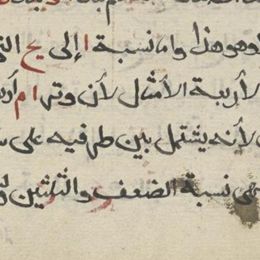 وهو هذا واما نسبة ا إلى يح التي
الأربعة الأمثال لأن وتر ا م أر
لأنه يشتمل بين طرفيه على
هي نسبة الضعف والثلثين